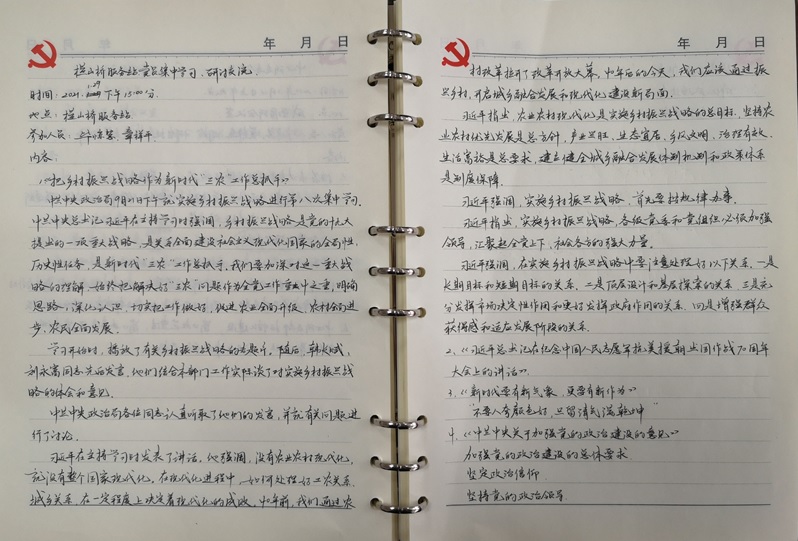 年 月 日
横山桥服务站党员集中学习、研讨交流
时间: 2021.1.29 下午15:00分.
地点: 横山桥服务站
参加人员:
内容:
1、《把乡村振兴战略作为新时代"三农"工作总抓手》
中共中央政治局9月21日下午就实施乡村振兴战略进行第八次集中学习.
中共中央总书记习近平在主持学习时强调, 乡村振兴战略是党的十九大
提出的一项重大战略, 是关系全面建设社会主义现代化国家的全局性、
历史性任务, 是新时代"三农"工作总抓手, 我们要加深对这一重大战
略的理解, 始终把解决好"三农"问题作为全党工作重中之重, 明确
思路, 深化认识, 切实把工作做好, 促进农业全面升级、农村全面进
步、农民全面发展.
学习开始时, 播放了有关乡村振兴战略的专题片, 随后, 韩长赋、
刘永富同志先后发言. 他们结合本部门工作实际谈了对实施乡村振兴战
略的体会和意见.
中共中央政治局各位同志认真听取了他们的发言, 并就有关问题进
行了讨论.
习近平在主持学习时发表了讲话. 他强调, 没有农业农村现代化,
就没有整个国家现代化. 在现代化进程中, 如何处理好工农关系、
城乡关系, 在一定程度上决定着现代化的成败. 40年前, 我们通过农
年 月 日
村改革拉开了改革开放大幕. 40年后的今天, 我们应该通过振
兴乡村, 开启城乡融合发展和现代化建设新局面.
习近平指出, 农业农村现代化是实施乡村振兴战略的总目标, 坚持农
业农村优先发展是总方针, 产业兴旺、生态宜居、乡风文明、治理有效、
生活富裕是总要求, 建立健全城乡融合发展体制机制和政策体系
是制度保障.
习近平强调, 实施乡村振兴战略, 首先要按规律办事.
习近平指出, 实施乡村振兴战略, 各级党委和党组织必须加强
领导, 汇聚起全党上下、社会各方的强大力量.
习近平强调, 在实施乡村振兴战略中要注意处理好以下关系. 一是
长期目标和短期目标的关系. 二是顶层设计和基层探索的关系. 三是充
分发挥市场决定性作用和更好发挥政府作用的关系. 四是增强群众
获得感和适应发展阶段的关系.
2、《习近平总书记在纪念中国人民志愿军抗美援朝出国作战70周年
大会上的讲话》.
3、《新时代要有新气象, 更要有新作为》
"不要人夸颜色好, 只留清气满乾坤"
4、《中共中央关于加强党的政治建设的意见》
加强党的政治建设的总体要求
坚定政治信仰
坚持党的政治领导